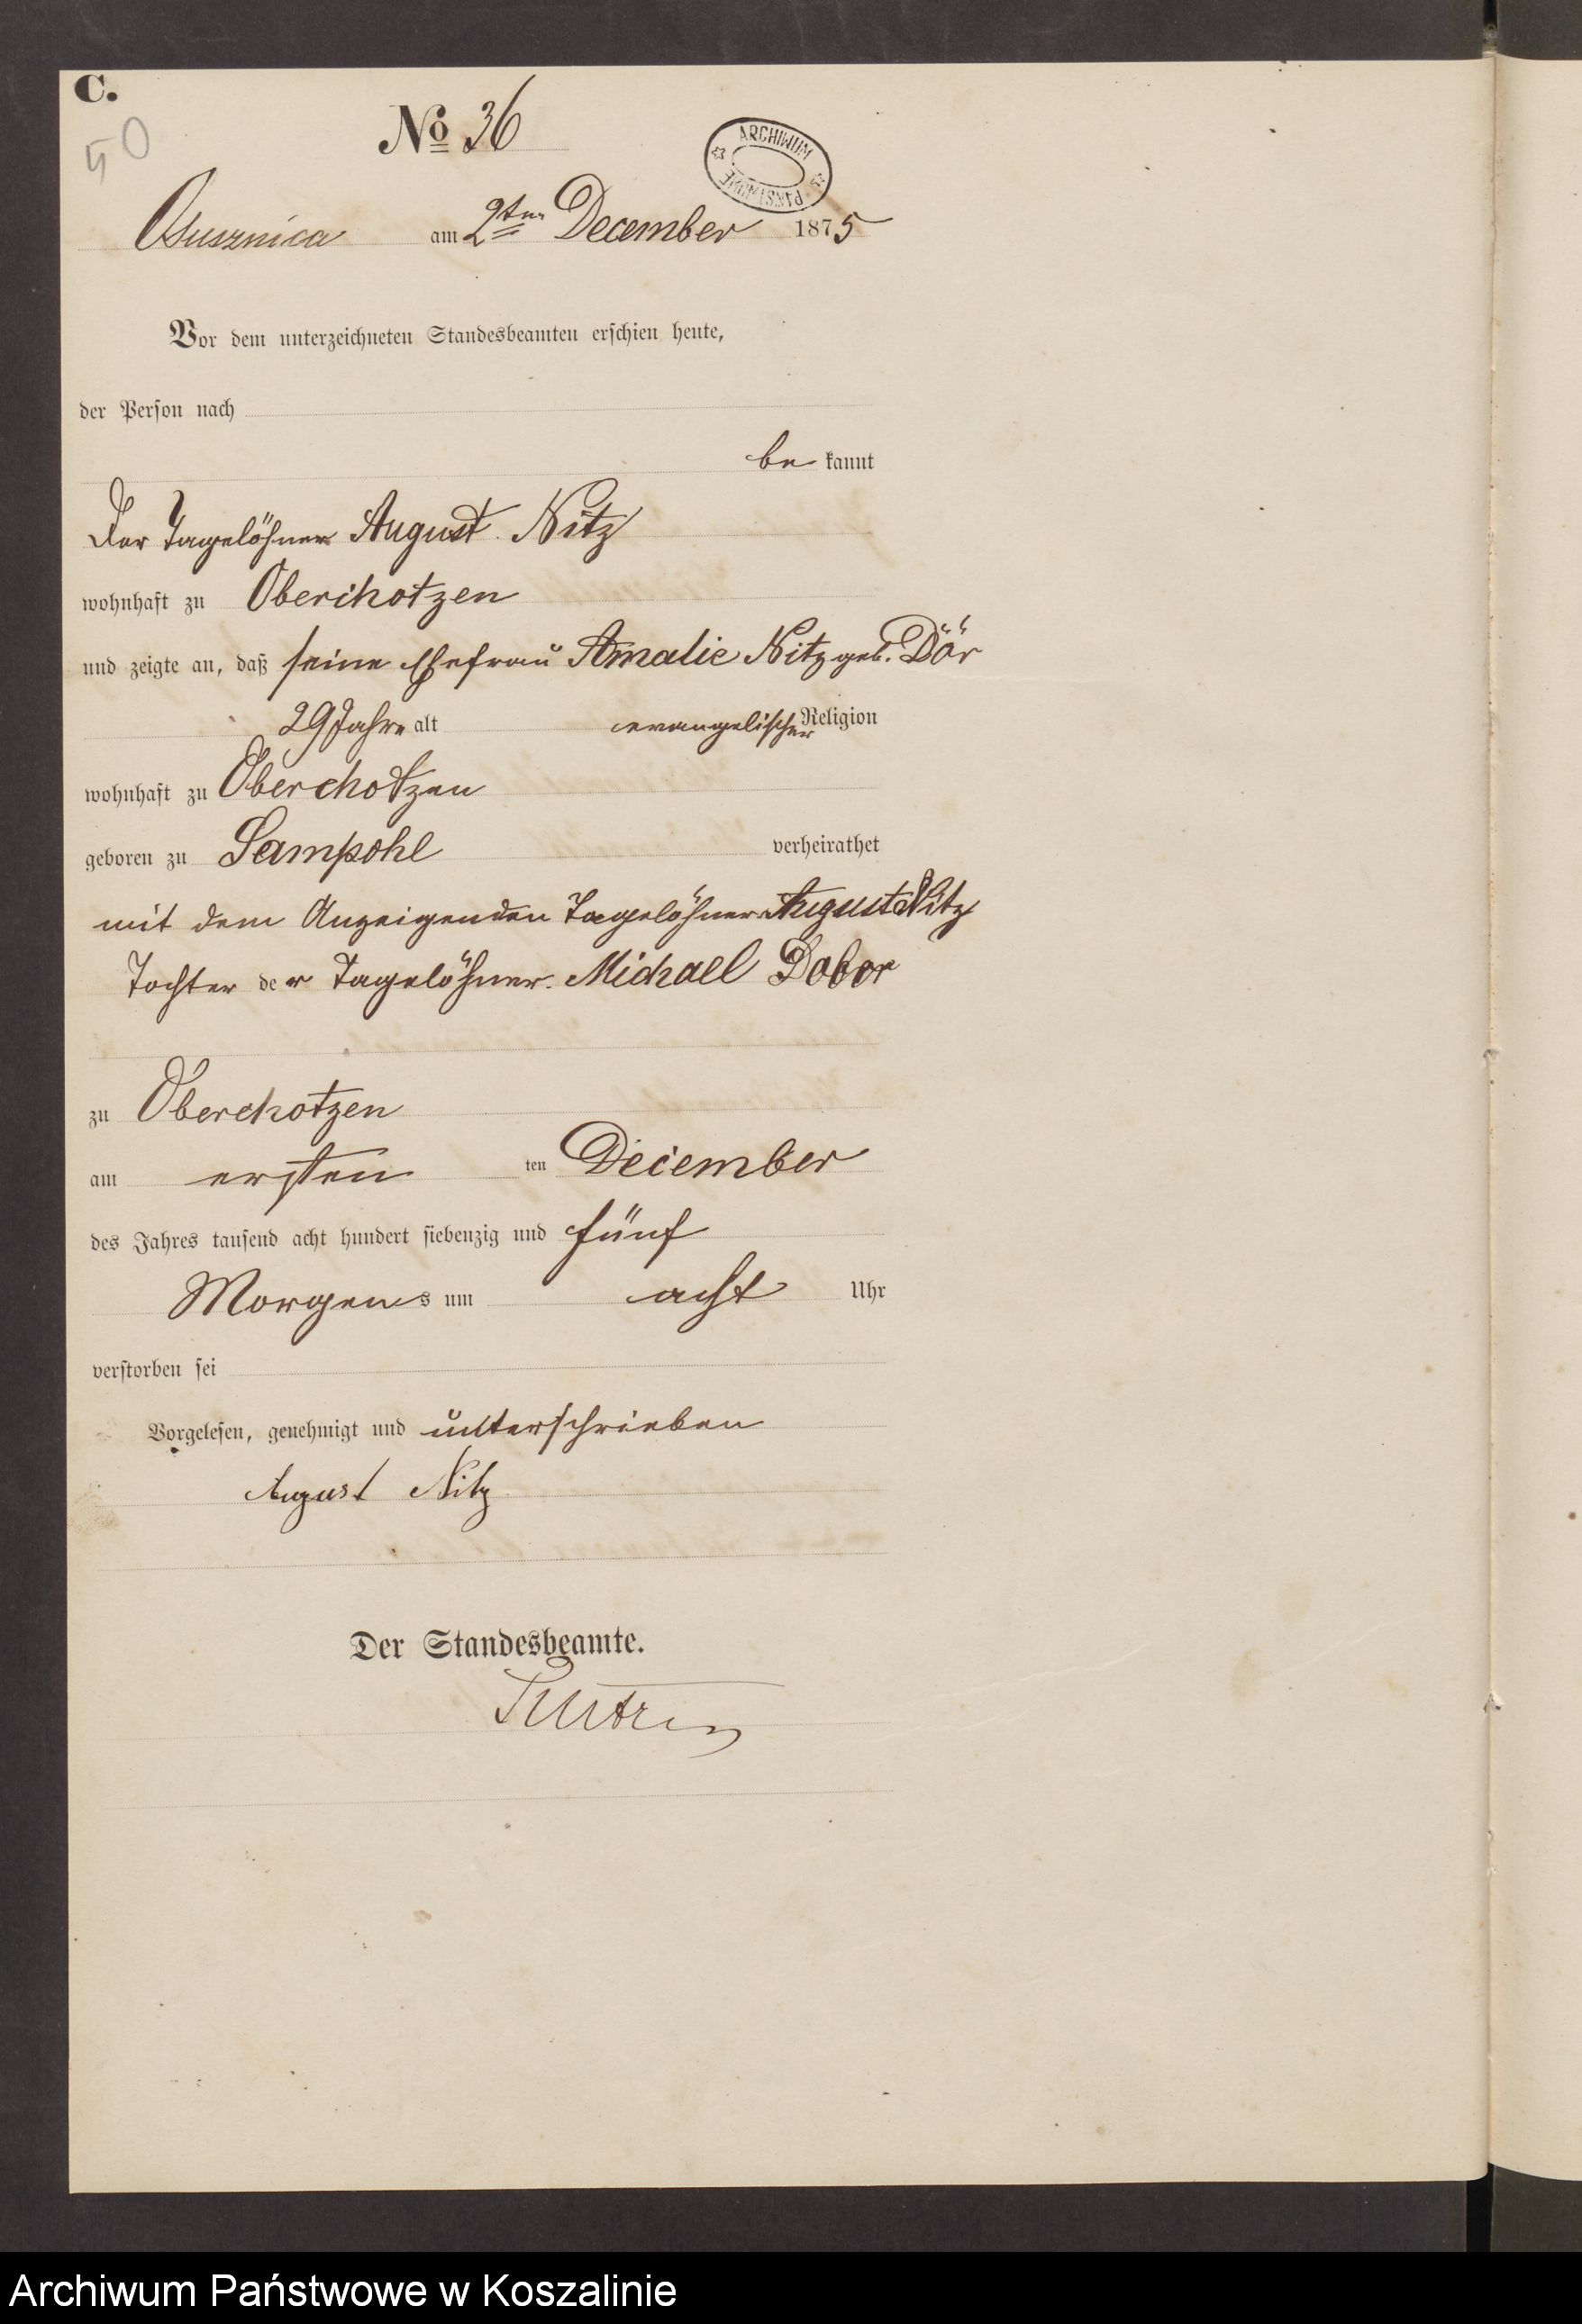 C.
50
No 36
ARCHIWUM PAŃSTWOWE
Osusznica am 2ten December 1875
Vor dem unterzeichneten Standesbeamten erschien heute,
der Person nach
be kannt
Der Tagelöhner August Nitz
wohnhaft zu Oberchotzen
und zeigte an, daß seine Ehefrau Amalie Nitz geb. Dör
29 Jahre alt evangelischer Religion
wohnhaft zu Oberchotzen
geboren zu Sampohl verheirathet
mit dem Anzeigenden Tagelöhner August Nitz
Tochter der Tagelöhner Michael
zu Oberchotzen
am ersten ten December
des Jahres tausend acht hundert siebenzig und fünf
Morgens um acht Uhr
verstorben sei
Vorgelesen, genehmigt und unterschrieben
August Nitz
Der Standesbeamte.
Archiwum Państwowe w Koszalinie